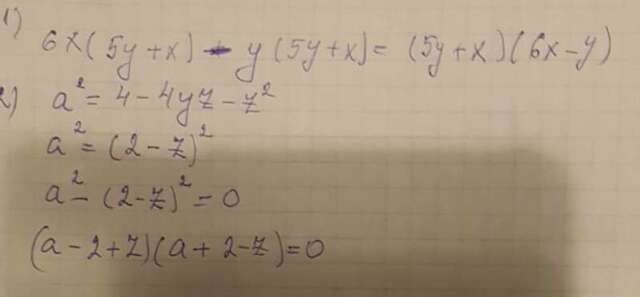 1)
6x(5y+x) - y(5y+x) = (5y+x)(6x-y)
2) a² = 4 - 4yz - z²
a² = (2-z)²
a² - (2-z)² = 0
(a-2+z)(a+2-z)=0